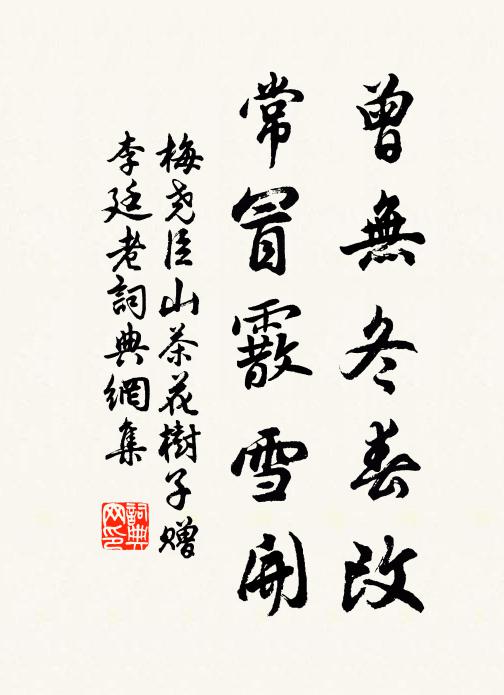 曾無冬春改
常冒霰雪開
梅堯臣山茶花樹子贈
李廷老詞典網集
詞典
网印